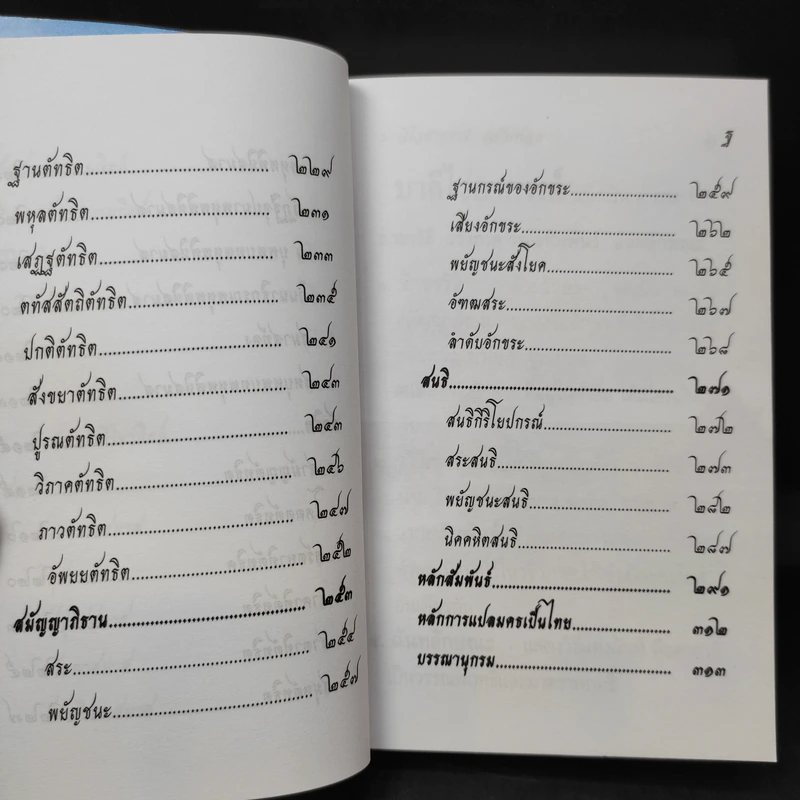 ฐานตัทธิต.......... ๒๒๙
พหุลตัทธิต.......... ๒๓๑
เสฏฐตัทธิต.......... ๒๓๓
ตทัสสัตถิตัทธิต.......... ๒๓๕
ปกติตัทธิต.......... ๒๔๑
สังขยาตัทธิต.......... ๒๔๓
ปูรณตัทธิต.......... ๒๔๓
วิภาคตัทธิต.......... ๒๔๖
ภาวตัทธิต.......... ๒๔๗
อัพยยตัทธิต.......... ๒๕๒
สมัญญาภิธาน.......... ๒๕๓
สระ.......... ๒๕๔
พยัญชนะ.......... ๒๕๗
ฐ
ฐานกรณ์ของอักขระ.......... ๒๕๙
เสียงอักขระ.......... ๒๖๒
พยัญชนะสังโยค.......... ๒๖๕
อัฑฒสระ.......... ๒๖๗
ลำดับอักขระ.......... ๒๖๘
สนธิ.......... ๒๗๑
สนธิกิริโยปกรณ์.......... ๒๗๒
สระสนธิ.......... ๒๗๓
พยัญชนะสนธิ.......... ๒๘๒
นิคคหิตสนธิ.......... ๒๘๗
หลักสัมพันธ์.......... ๒๙๑
หลักการแปลมคธเป็นไทย.......... ๓๑๒
บรรณานุกรม.......... ๓๑๓